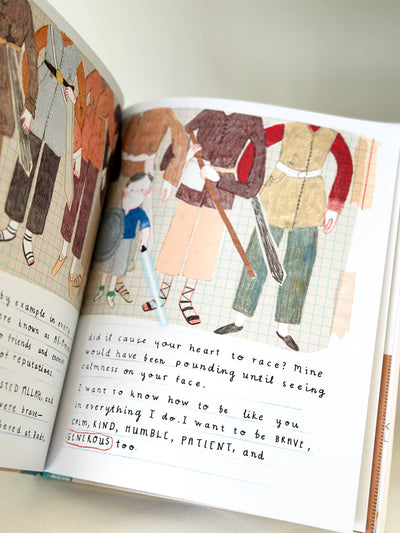 by example in every
were known as Al-
o friends and enem
of reputations.
STED ALLAH, and
were brave—
hered at Badr,
did it cause your heart to race? Mine
would have been pounding until seeing
calmness on your face.
I want to know how to be like you
in everything I do. I want to be BRAVE,
CALM, KIND, HUMBLE, PATIENT, and
GENEROUS too.